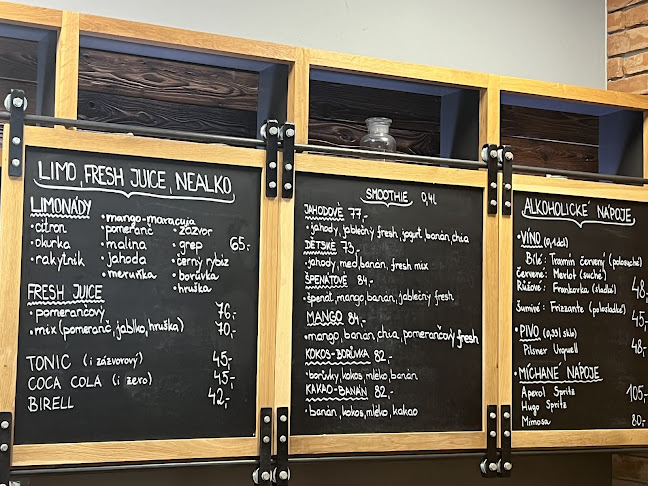 LIMO, FRESH JUICE, NEALKO
LIMONÁDY
• mango-maracuja
• citron • pomeranč • zázvor
• okurka • malina • grep 65,-
• rakytník • jahoda • černý rybíz
• meruňka • borůvka
• hruška
FRESH JUICE
• pomerančový 76,-
• mix (pomeranč, jablko, hruška) 70,-
TONIC (i zázvorový) 45,-
COCA COLA (i zero) 45,-
BIRELL 42,-
SMOOTHIE 0,4l
JAHODOVÉ 77,-
• jahody, jablečný fresh, jogurt, banán, chia
DĚTSKÉ 79,-
• jahody, med, banán, fresh mix
ŠPENÁTOVÉ 84,-
• špenát, mango, banán, jablečný fresh
MANGO 84,-
• mango, banán, chia, pomerančový fresh
KOKOS-BORŮVKA 82,-
• borůvky, kokos, mléko, banán
KAKAO-BANÁN 82,-
• banán, kokos, mléko, kakao
ALKOHOLICKÉ NÁPOJE
• VÍNO (0,1dcl)
Bílé: Tramín červený (polosuché)
Červené: Merlot (suché)
Růžové: Frankovka (sladké) 48,-
Šumivé: Frizzante (polosladké) 45,-
• PIVO (0,33l sklo)
Pilsner Urquell 48,-
• MÍCHANÉ NÁPOJE
Aperol Spritz 105,-
Hugo Spritz
Mimosa 80,-